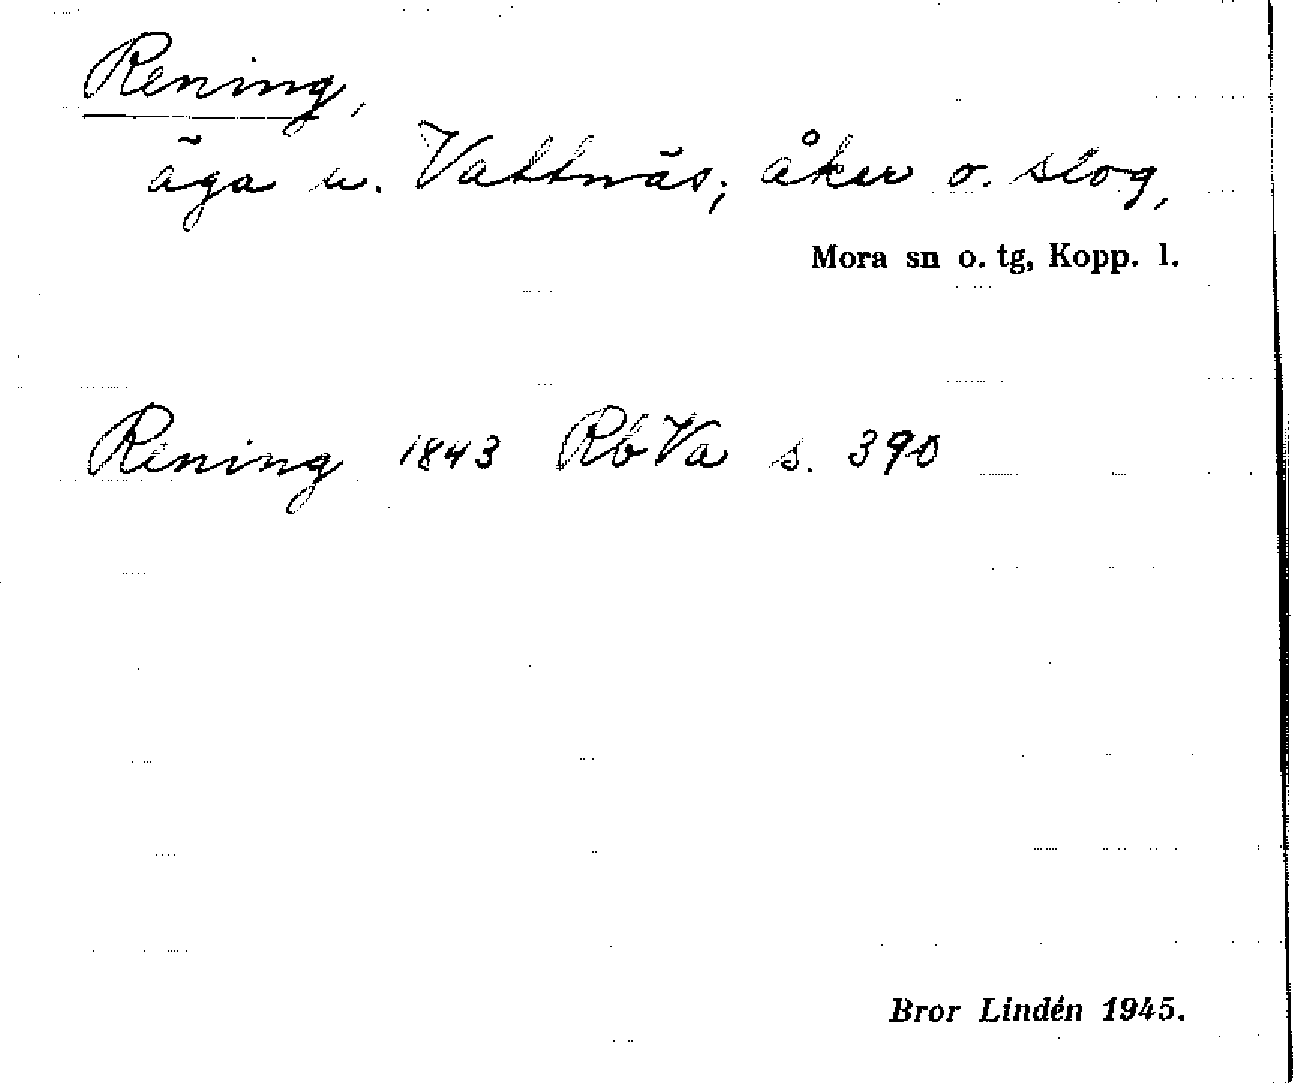 Rening,
äga u. Vattnäs; åker o. slog,
Mora sn o. tg, Kopp. l.
Rening 1843 Rb Va s. 390
Bror Lindén 1945.